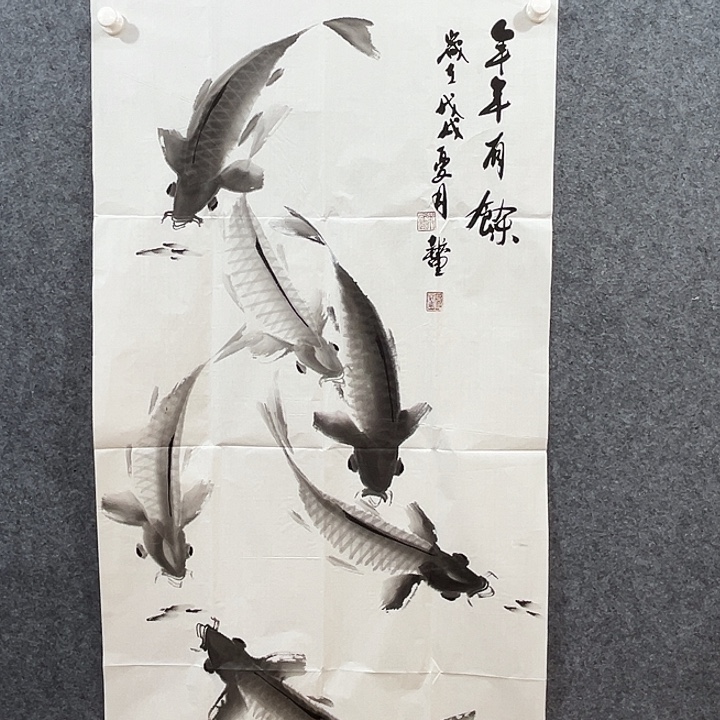 年年有餘
歲在戊戌夏月